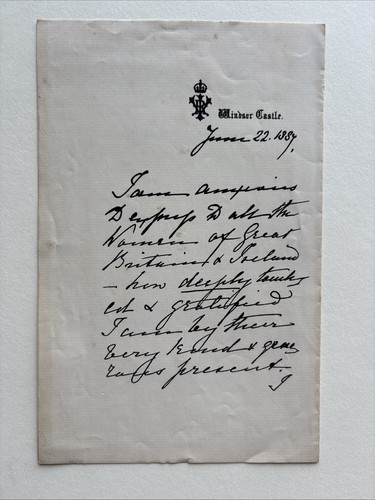 Windsor Castle.
June 22. 1887.
I am anxious
to express to all the
Women of Great
Britain & Ireland
– how deeply touch
ed & gratified
I am by their
very kind & gene
rous present.
I